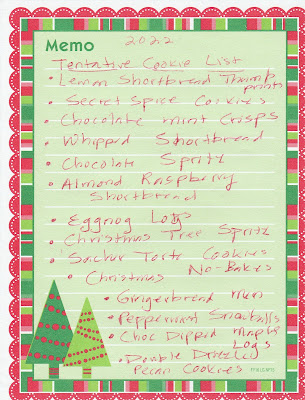 Memo
2022
Tentative Cookie List
• Lemon Shortbread Thumb
prints
• Secret Spice Cookies
• Chocolate mint Crisps
• Whipped Shortbread
• Chocolate Spritz
• Almond Raspberry
Shortbread
• Eggnog Logs
• Christmas Tree Spritz
• Sacher Torte Cookies
• Christmas No-Bakes
• Gingerbread men
• Peppermint Snowballs
• Choc Dipped Maple
Logs
• Double Drizzled
Pecan Cookies